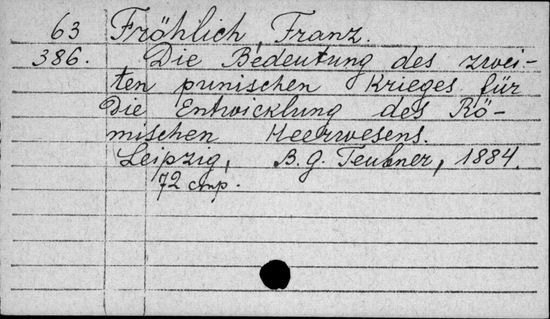 63 Fröhlich, Franz.
386. Die Bedeutung des zwei-
ten punischen Krieges für
die Entwicklung des Rö-
mischen Heerwesens.
Leipzig, B. G. Teubner, 1884.
72 стр.